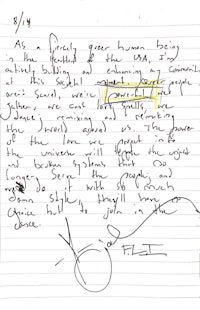 8/14
As a fiercely queer human being
in the heartland of the USA, I'm
actively building and enhancing my community
at this societal moment. Queer people
aren't scared, we're powerful and
together, we cast love spells. We
dance, remixing and remaking
the world around us. The power
of the love we project into
the universe will topple the unjust
and broken systems that no
longer serve the people, and
we'll do it with so much
damn style, they'll have no
choice but to join in the
dance.